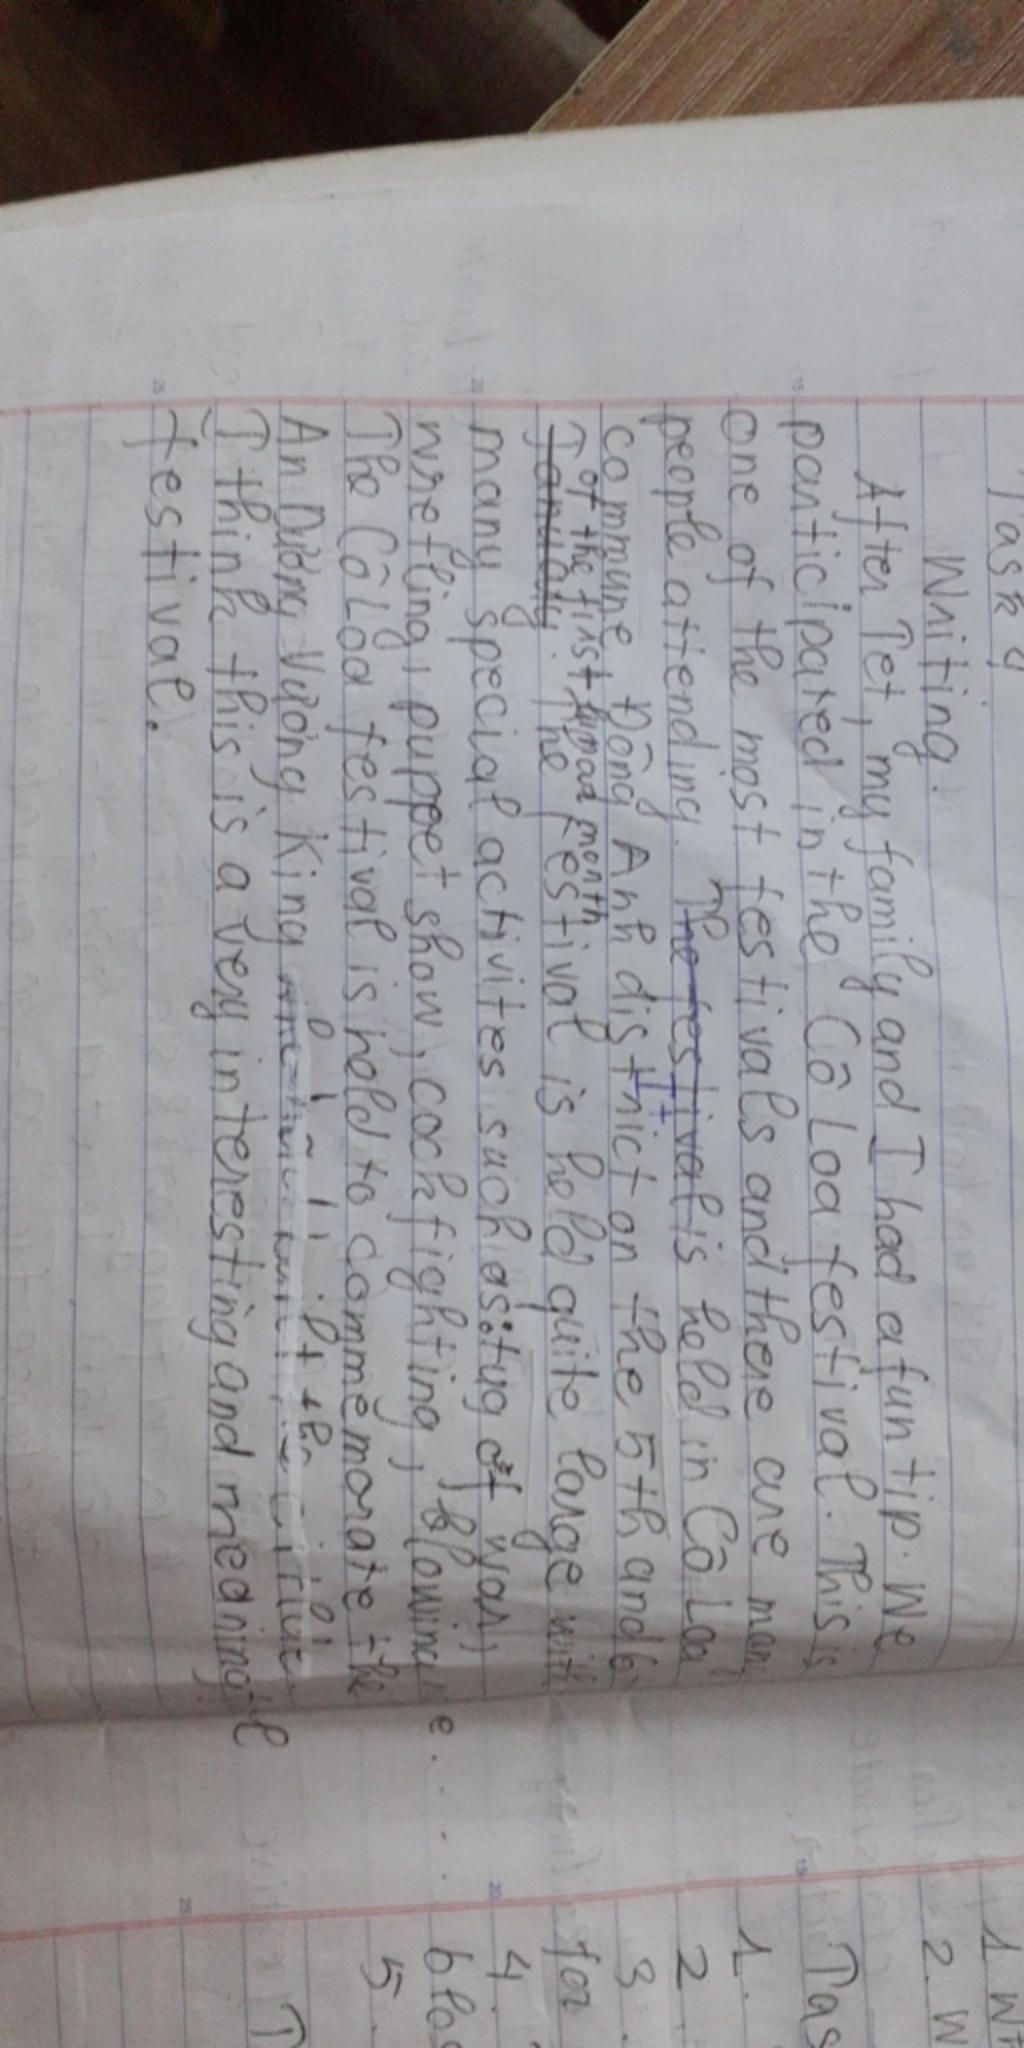 Task 4
Writing.
After Tet, my family and I had a fun tip. We
participated in the Cổ Loa festival. This is
one of the most festivals and there are many
people attending. The festival is held in Cổ Loa
commune, Đông Anh district on the 5th and 6
of the first lunar month
January. The festival is held quite large with
many special activites such as: tug of war,
wrestling, puppet show, cockfighting, blowing
e....
The Cổ Loa festival is held to commemorate the
An Dương Vương King
I think this is a very interesting and meaningful
festival.
1 W
2. W
Tas
1.
2
3.
for
4.
5.
T